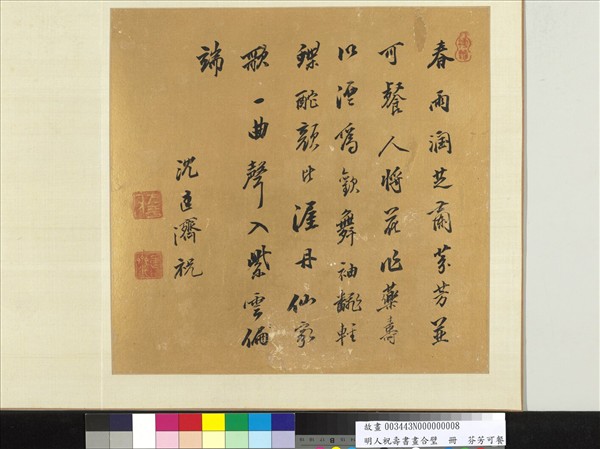 春雨潤芝蘭芬芳並
可餐人將花作藥壽
以酒為歡舞袖翻輕
鬟酡顏比渥丹仙家
歌一曲聲入紫雲
端
沈匡濟祝
故畫 003443N000000008
明人祝壽書畫合璧 冊 芬芳可餐